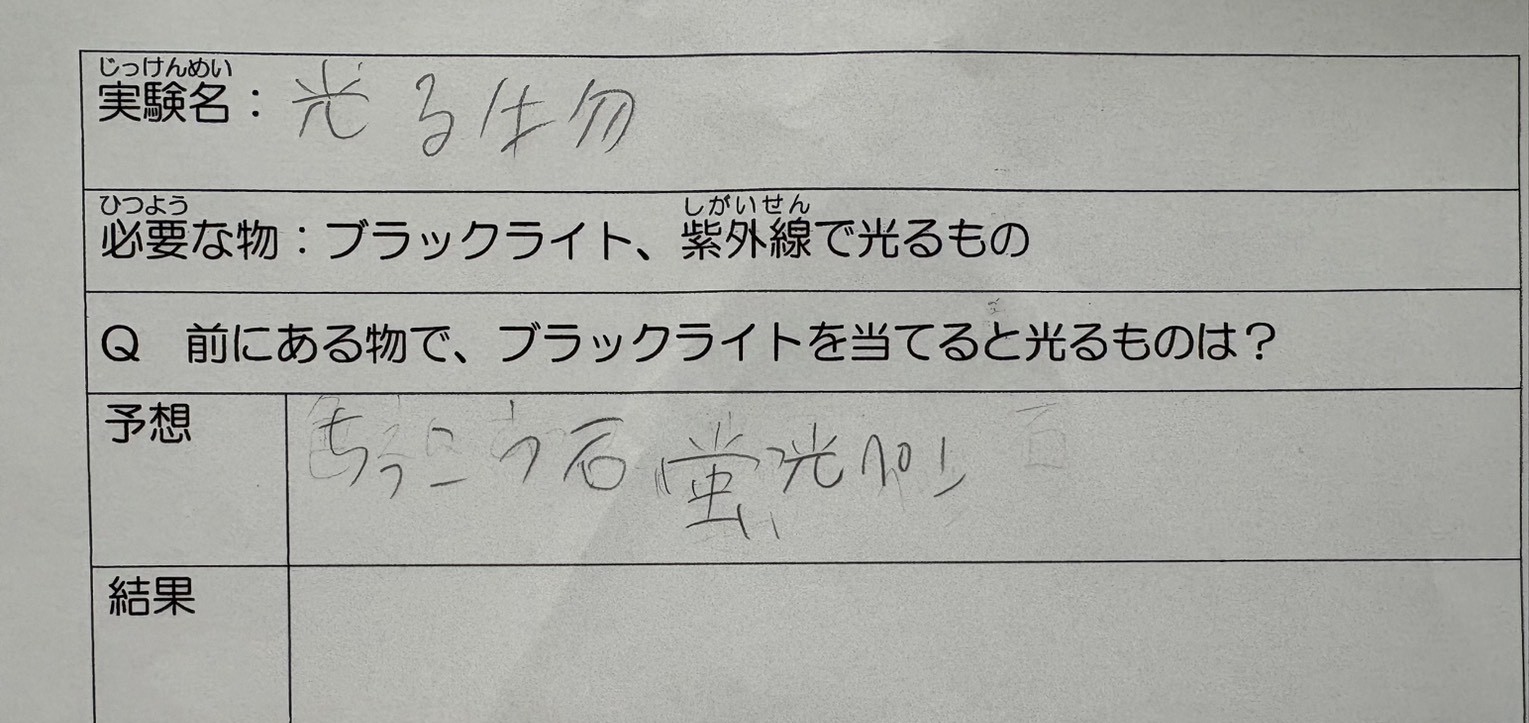 じっけんめい
実験名：光る生物
ひつよう しがいせん
必要な物：ブラックライト、紫外線で光るもの
Q 前にある物で、ブラックライトを当てると光るものは？
予想 石 蛍光ペン
結果